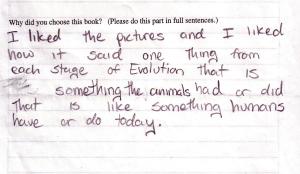 Why did you choose this book? (Please do this part in full sentences.)
I liked the pictures and I liked
how it said one thing from
each stage of Evolution that is
something the animals had or did
That is like something humans
have or do today.